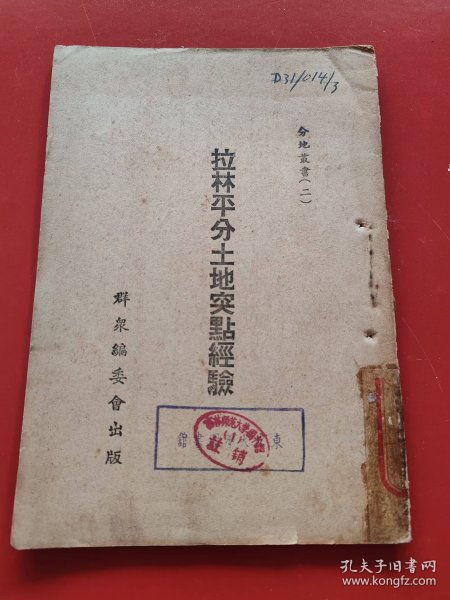 D31/014/3
分地叢書(二)
拉林平分土地突點經驗
群眾編委會出版
東
館
註銷
孔夫子旧书网
www.kongfz.com